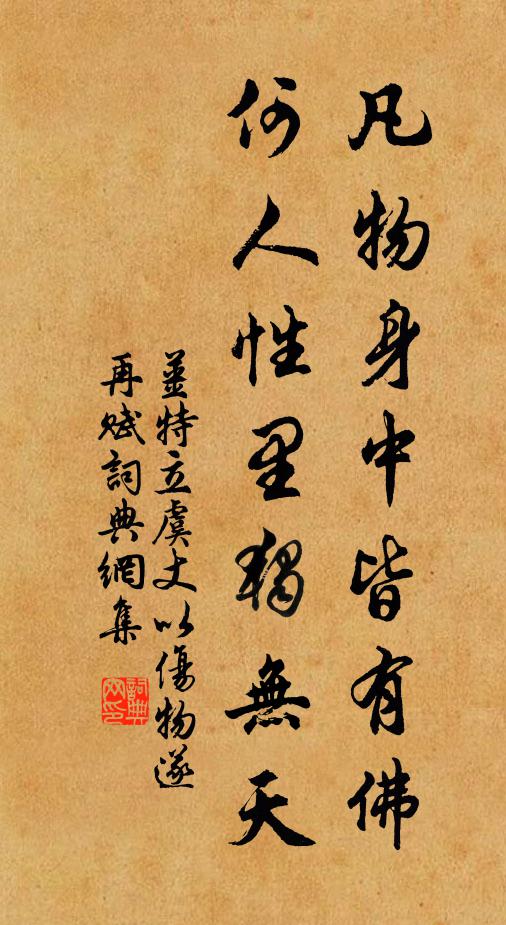 凡物身中皆有佛
何人性里獨無天
姜特立虞丈以傷物遂
再賦詞典網集
詞典
网印